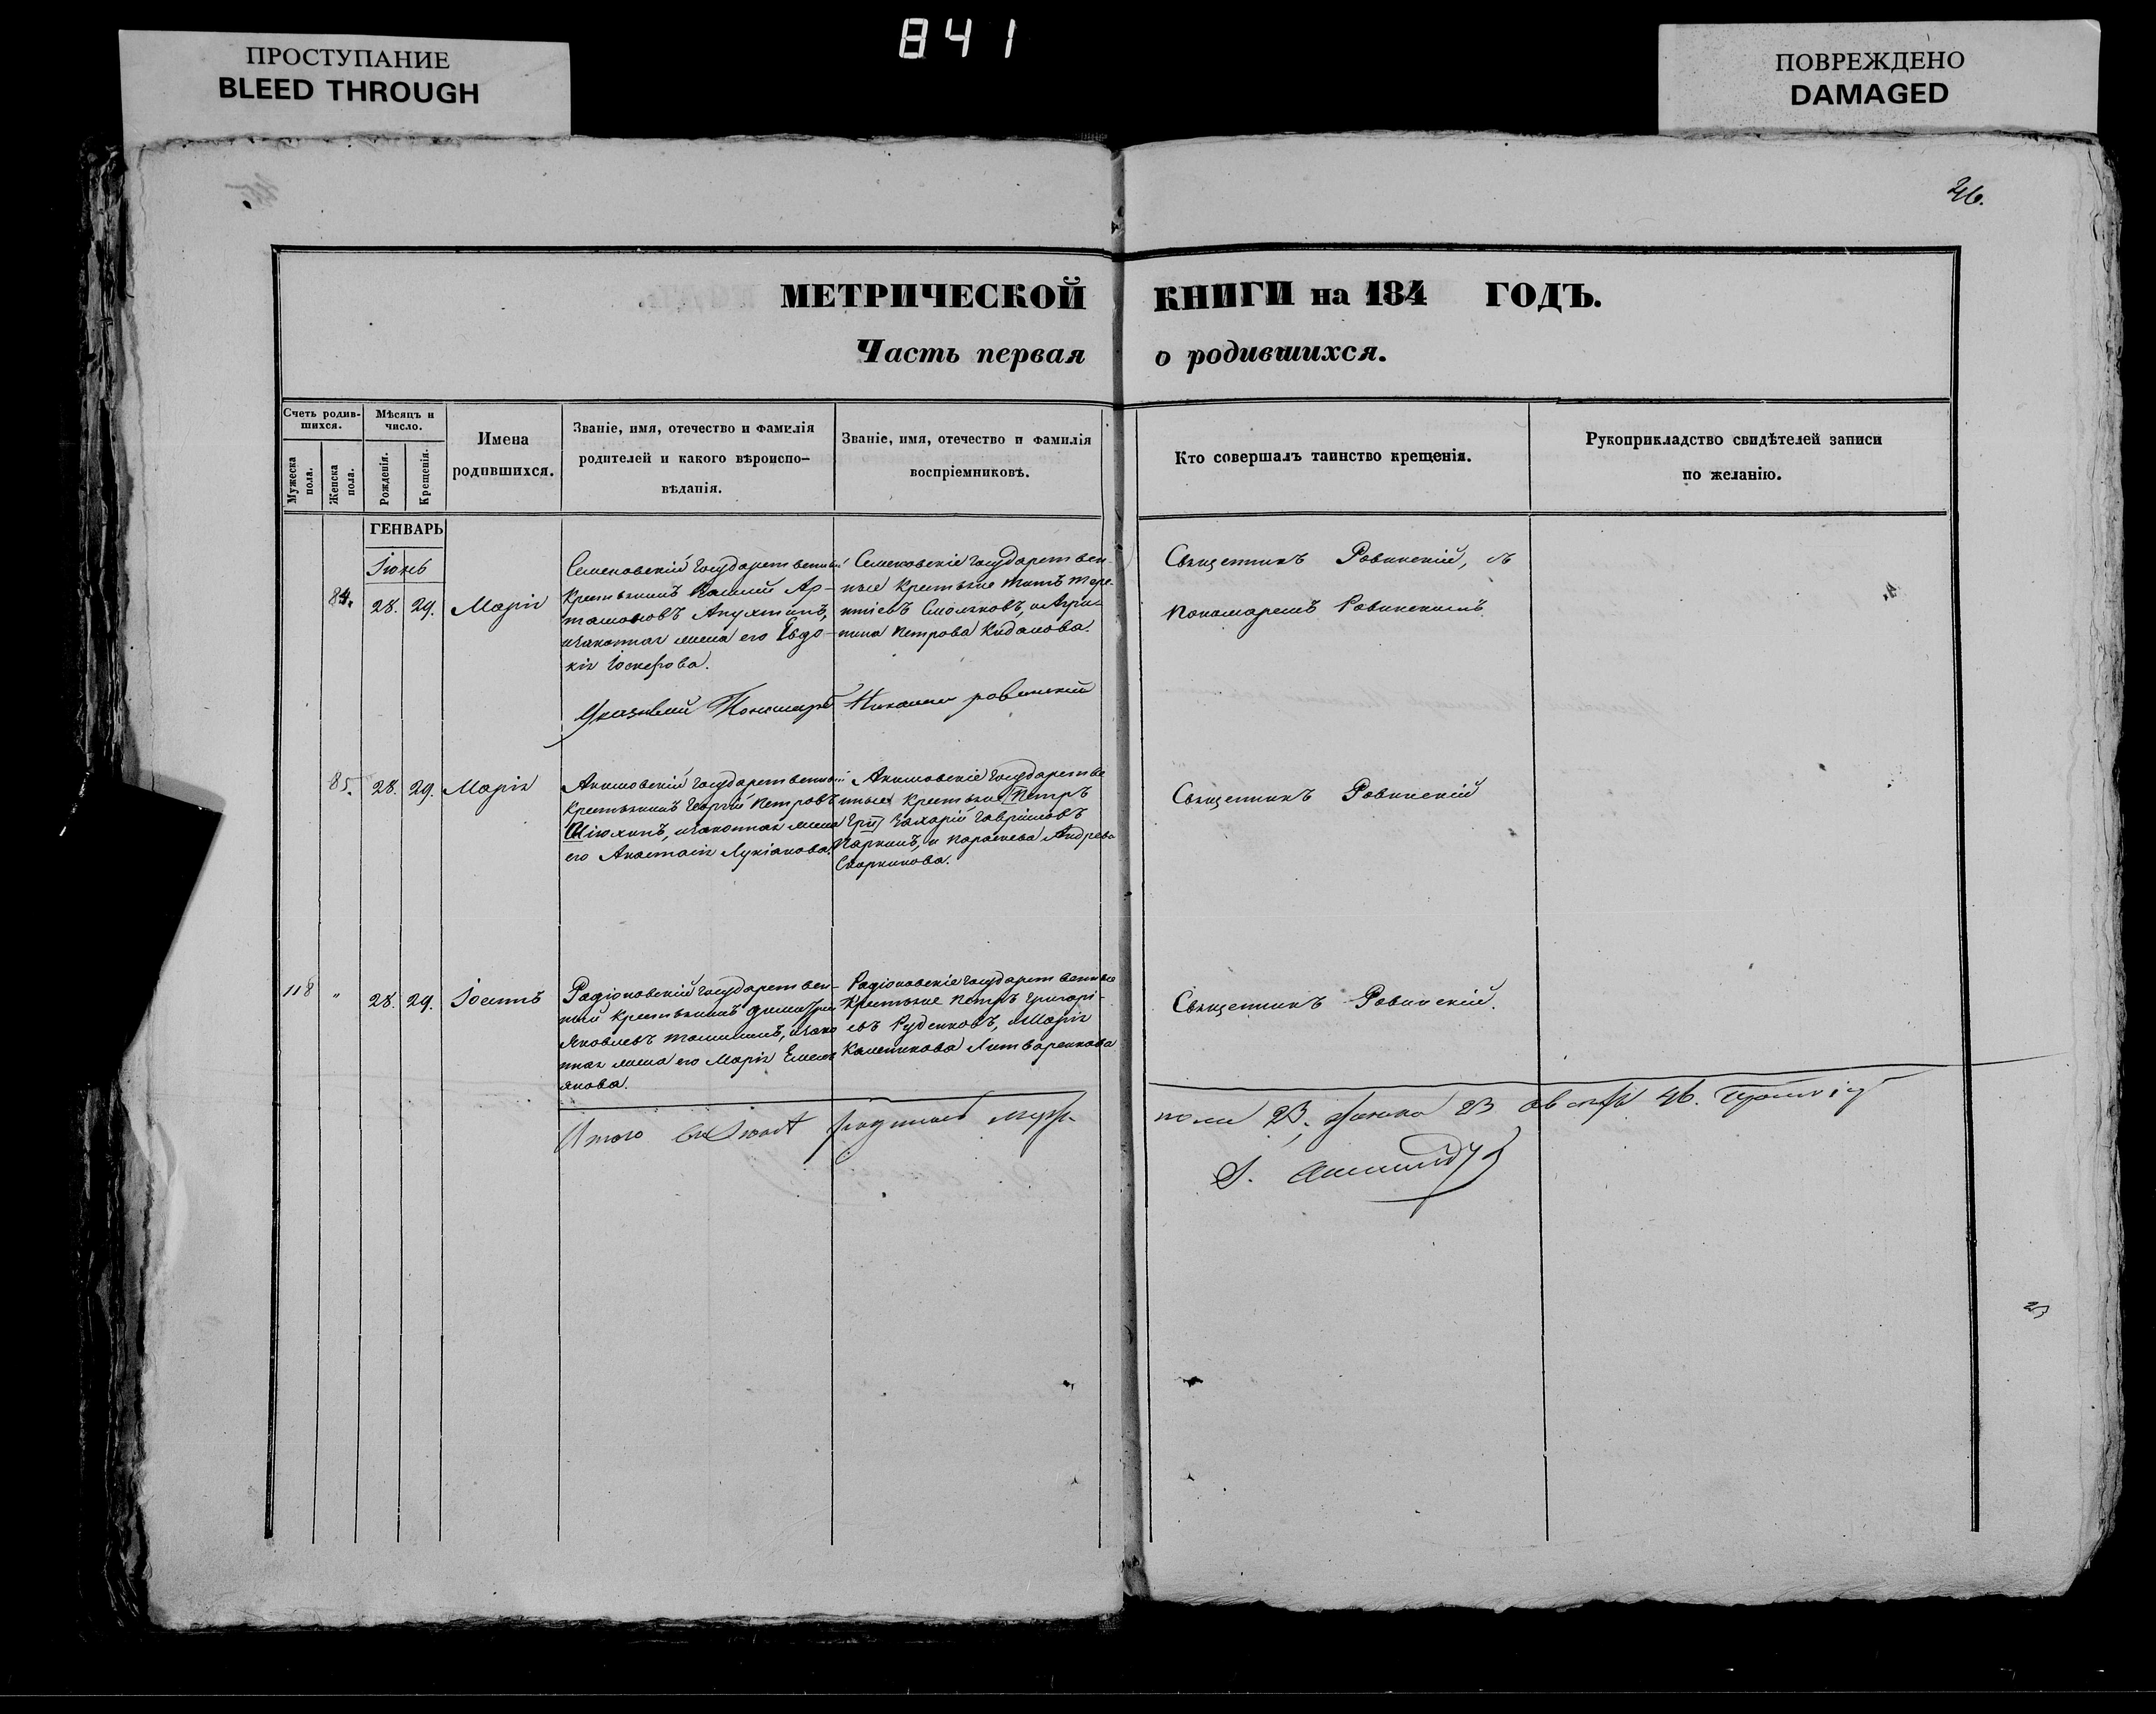 841
ПРОСТУПАНИЕ
BLEED THROUGH
ПОВРЕЖДЕНО
DAMAGED
46.
МЕТРИЧЕСКОЙ КНИГИ на 184 ГОДЪ.
Часть первая о родившихся.
Счетъ родив-
шихся.
Мужеска
пола.
Женска
пола.
Мѣсяцъ и
число.
Рожденія.
Крещенія.
Имена
родившихся.
Званіе, имя, отечество и фамилія
родителей и какого вѣроиспо-
вѣданія.
Званіе, имя, отечество и фамилія
воспріемниковъ.
Кто совершалъ таинство крещенія.
Рукоприкладство свидѣтелей записи
по желанію.
ГЕНВАРЬ
Іюнь
84. 28. 29. Марія
Семеновскій государственный
крестьянинъ Ар-
тамоновъ Апухтинъ,
и законная жена его Евдо-
кія Іосифова.
Семеновскіе государствен-
ные крестьяне Титъ Тере-
нтіевъ Смоляковъ, и Агри-
пина Петрова Киданова.
Священникъ Ровинскій, съ
Пономаремъ Ровинскимъ
Пономарь Ровинскій
85. 28. 29. Марія
Акимовскій государственный
крестьянинъ Георгій Петровъ
и законная жена
его Анастасія Лукіанова.
Акимовскіе государстве
нные крестьяне Петръ
Гри Захарій Гавриловъ
Паркинъ, и Параскева Андреева
Скоркинова.
Священникъ Ровинскій
118 " 28. 29. Іоаннъ
Радіоновскій государствен-
ный крестьянинъ Димитрій
Яковлевъ и закон
ная жена его Марія Емель
янова.
Радіоновскіе государственные
крестьяне Петръ Григорі-
евъ Руденковъ, и Марія
Литваренкова
Священникъ Ровинскій.
Итого муж.
пола 23, женска 23 46.